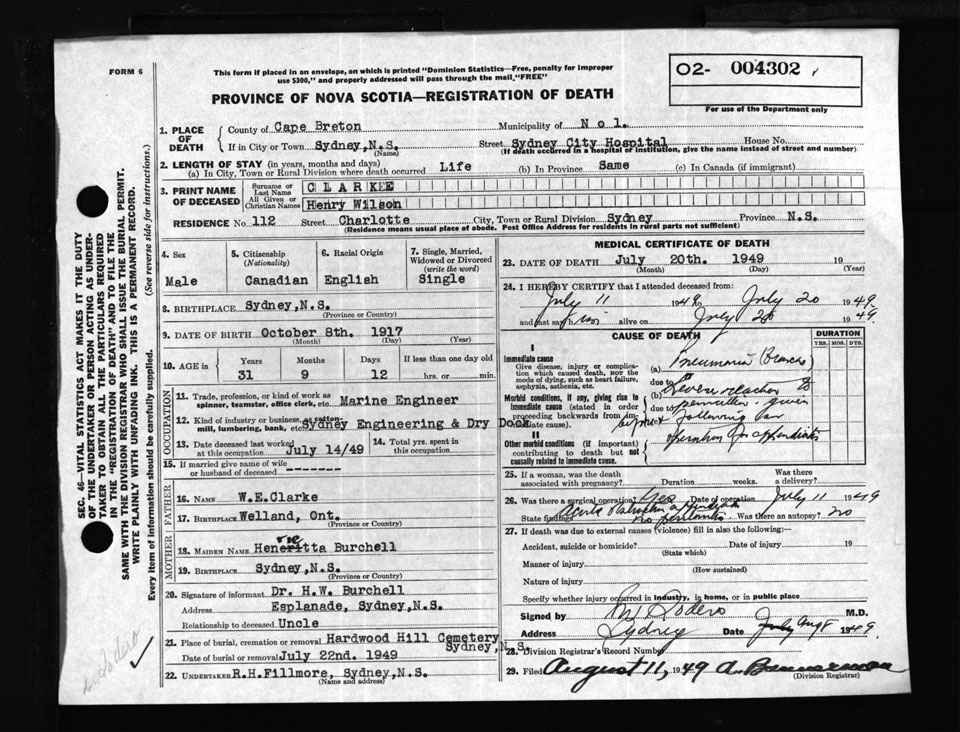 FORM 6
This form if placed in an envelope, on which is printed "Dominion Statistics—Free, penalty for improper
use $300," and properly addressed will pass through the mail, "FREE"
02- 004302
For use of the Department only
PROVINCE OF NOVA SCOTIA—REGISTRATION OF DEATH
SEC. 46—VITAL STATISTICS ACT MAKES IT THE DUTY
OF THE UNDERTAKER OR PERSON ACTING AS UNDER-
TAKER TO OBTAIN ALL THE PARTICULARS REQUIRED
IN THE "REGISTRATION OF DEATH" AND TO FILE THE
SAME WITH THE DIVISION REGISTRAR WHO SHALL ISSUE THE BURIAL PERMIT.
WRITE PLAINLY WITH UNFADING INK. THIS IS A PERMANENT RECORD.
Every item of information should be carefully supplied. (See reverse side for instructions.)
1. PLACE OF DEATH
County of Cape Breton Municipality of No 1.
If in City or Town Sydney, N.S. Street Sydney City Hospital House No.
(Name) (If death occurred in a hospital or institution, give the name instead of street and number)
2. LENGTH OF STAY (in years, months and days)
(a) In City, Town or Rural Division where death occurred Life (b) In Province Same (c) In Canada (if immigrant)
3. PRINT NAME OF DECEASED
Surname or Last Name CLARKE
All Given or Christian Names Henry Wilson
RESIDENCE No. 112 Street Charlotte City, Town or Rural Division Sydney Province N.S.
(Residence means usual place of abode. Post Office Address for residents in rural parts not sufficient)
4. Sex 5. Citizenship (Nationality) 6. Racial Origin 7. Single, Married, Widowed or Divorced (write the word)
Male Canadian English Single
8. BIRTHPLACE Sydney, N.S.
(Province or Country)
9. DATE OF BIRTH October 8th. 1917
(Month) (Day) (Year)
10. AGE in Years Months Days If less than one day old
31 9 12 hrs. or min.
OCCUPATION
11. Trade, profession, or kind of work as spinner, teamster, office clerk, etc. Marine Engineer
12. Kind of industry or business, as cotton-mill, lumbering, bank, etc. Sydney Engineering & Dry Dock
13. Date deceased last worked at this occupation July 14/49 14. Total yrs. spent in this occupation
15. If married give name of wife or husband of deceased --------
FATHER
16. NAME W.E.Clarke
17. BIRTHPLACE Welland, Ont.
(Province or Country)
MOTHER
18. MAIDEN NAME Henerietta Burchell
19. BIRTHPLACE Sydney, N.S.
(Province or Country)
20. Signature of informant Dr. H.W. Burchell
Address Esplanade, Sydney, N.S.
Relationship to deceased Uncle
21. Place of burial, cremation or removal Hardwood Hill Cemetery
Sydney, N.S.
Date of burial or removal July 22nd. 1949
22. UNDERTAKER R.H.Fillmore, Sydney, N.S.
(Name and address)
MEDICAL CERTIFICATE OF DEATH
23. DATE OF DEATH July 20th. 1949 19
(Month) (Day) (Year)
24. I HEREBY CERTIFY that I attended deceased from:
July 11 1949 to July 20 1949
and last saw him alive on July 20 1949.
CAUSE OF DEATH DURATION
YRS. MOS. DYS.
I
Immediate cause
Give disease, injury or complication which caused death, NOT the mode of dying, such as heart failure, asphyxia, asthenia, etc.
(a) Pneumonia Broncho
due to
Morbid conditions, if any, giving rise to immediate cause (stated in order proceeding backwards from immediate cause).
(b) Severe reaction to
due to penicillin given
following an
operation for appendicitis
II
Other morbid conditions (if important) contributing to death but not causally related to immediate cause.
25. If a woman, was the death associated with pregnancy? Duration weeks. Was there a delivery?
26. Was there a surgical operation? Yes Date of operation July 11 1949
State findings Acute appendicitis no peritonitis. Was there an autopsy? no
27. If death was due to external causes (violence) fill in also the following:—
Accident, suicide or homicide? Date of injury 19
(State which)
Manner of injury
(How sustained)
Nature of injury
Specify whether injury occurred in industry, in home, or in public place
Signed by M. Sodero M.D.
Address Sydney Date July Aug 8 1949.
28. Division Registrar's Record Number
29. Filed August 11, 1949 A. Bannerman
(Division Registrar)
Dr. Sodero